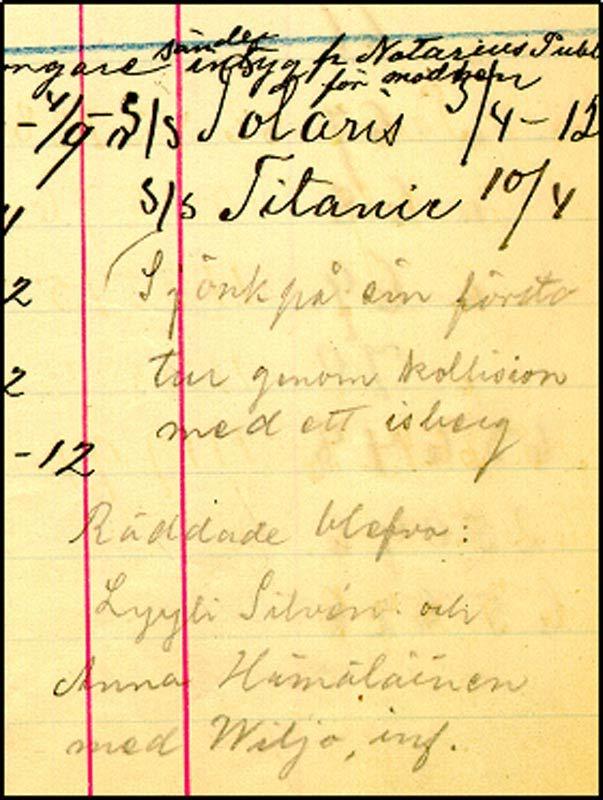 sände
intyg fr Notarius Publ
för
S/s Polaris 3/4-12
S/s Titanic 10/4
2 (Sjönk på sin första
2 tur genom kollision
med ett isberg
-12
Räddade blefvo:
Lyyli Silvén och
Anna Hämäläinen
med Wiljo, inf.